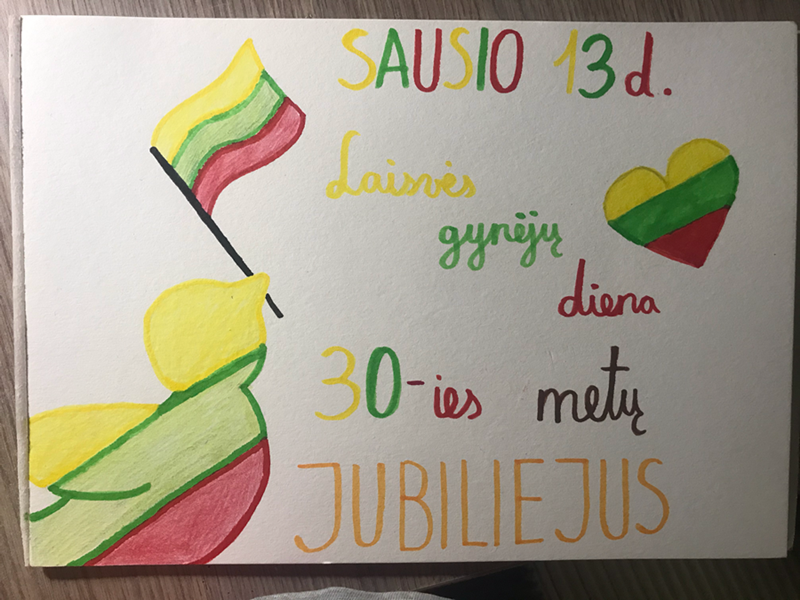 SAUSIO 13 d.
Laisvės
gynėjų
diena
30-ies metų
JUBILIEJUS